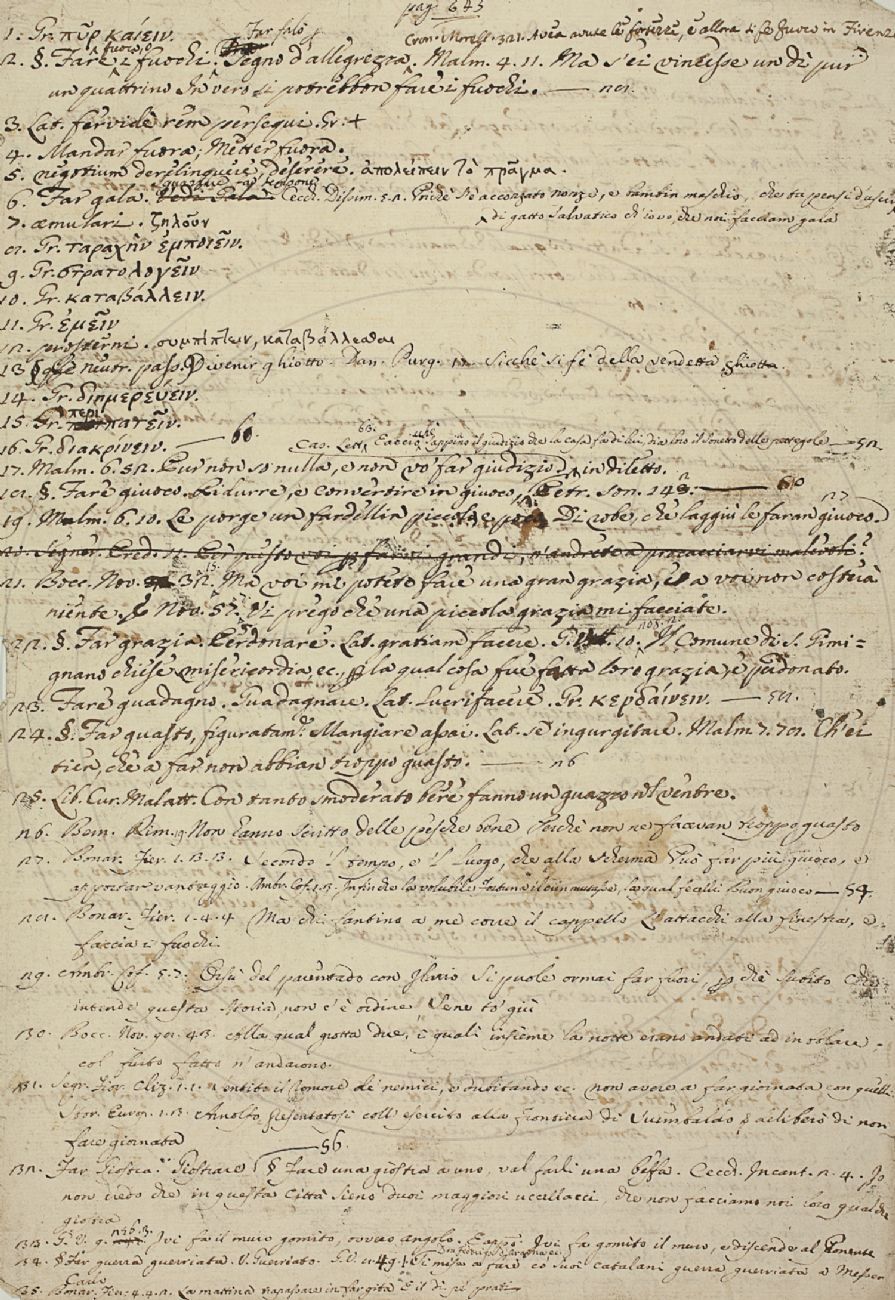 pag 643
1. Gr. πῦρ καίειν.
Far falò
Cron. Morell. 321. Avea avute le fortezze, e allora si fe fuoco in Firenze
2. §. Fare i fuochi. Segno d'allegrezza. Malm. 4. 11. Ma s'ei vincesse un dì pur
un quattrino In vero si potrebbon fare i fuochi. — 28.
3. Lat. fervide rem persequi. Gr. +
4. Mandar fuora, Metter fuora.
5. negotium derelinquere, deserere. ἀπολείπειν τὸ πρᾶγμα.
6. Far gala. Cecch. Dissim. 5. 2. Perchè s'è acconzato nozze, e bambin maschio, che sta pensi d'uscir
di gatto salvatico di covo, che noi facciam gala
7. æmulari. ζηλοῦν
8. Gr. ταραχὴν ἐμποιεῖν.
9. Gr. στρατολογεῖν
10. Gr. καταβάλλειν.
11. Gr. ἐμεῖν
12. prosterni. συμπίπτειν, καταβάλλεσθαι
13 § E neutr. pass. Divenir ghiotto. Dan. Purg. 17. Sicchè si fe della vendetta ghiotta
14. Gr. διημερεύειν.
15. Gr. περιπατεῖν.
16. Gr. διακρίνειν. — 60.
63. Car. Lett. Facciasi appieno il giudizio che la cosa fa di lui, dia loro il sonetto delle pettegole — 52
17. Malm. 6. 52. Pur non so nulla, e non vo' far giudizio, in diletto.
18. §. Fare giuoco. Ridurre, e convertire in giuoco. Petr. Son. 148. — 60
19. Malm. 6. 10. Le porge un fardellin piccolo Di robe, che laggiù le faran giuoco. 27
20. Segner. Cred. 11. Per questo voi per farvi grandi, v'andrete a procacciarvi malevoli?
21. Bocc. Nov. 32. 15. Ma voi mi potete fare una gran grazia, e a voi non costerà
niente. E Nov. 57. Vi prego che una piccola grazia mi facciate.
22. §. Far grazia. Perdonare. Lat. gratiam facere. G. V. 10. 208. 2. Il Comune di S. Gimi=
gnano chiese misericordia ec., per la qual cosa fue fatta loro grazia, e perdonato.
23. Fare guadagno. Guadagnare. Lat. Lucrifacere. Gr. κερδαίνειν. — 58.
24. §. Far guasto, figuratam.e Mangiare assai. Lat. se ingurgitare. Malm. 7. 78. Ch'ei
tien, che a far non abbian troppo guasto. — 26
25. Lib. Cur. Malatt. Con tanto smoderato bere fanno un guazzo nel ventre.
26. Bern. Rim. 9. Non hanno scritto delle pesche bene Perchè non ne facevan troppo guasto
27. Bonar. Fier. 1. 3. 3. Secondo 'l tempo, e 'l luogo, che alla scherma Può far più giuoco, e
apportar vantaggio. Ambr. Cof. 1. 3. Infinchè la volubile Fortuna il cuin mutasse, la qual fecegli buon giuoco — 54.
28. Bonar. Fier. 1. 4. 4 Ma chi fantino a me corre il cappello L'attacchi alla finestra, e
faccia i fuochi.
29. Ambr. Cof. 5. 7. Chiù del parentado con Ilario Si puole ormai far fuori, per che subito Che
intende questa storia, non c'è ordine, Sene tò giù
30. Bocc. Nov. 98. 43. colla qual grotta due, i quali insieme la notte erano andati ad imbolare,
col furto fatto n'andarono.
31. Segr. Fior. Cliz. 1. 1. sentito il romore de' nemici, e dubitando ec. non avere a far giornata con quelli.
Stor. Europ. 1. 13. Arnolfo presentatosi coll'esercito alla frontiera di Suembaldo per diliberò di non
fare giornata
32. Far Giostra. Giostrare — 56. § Fare una giostra a uno, val farli una beffa. Cecch. Incant. 2. 4. Io
non credo che in questa Città sieno duoi maggiori uccellacci, che non facciamo noi loro qualche
giostra
33. G. V. 9. 256. 3. Ivi fa il muro gomito, ovvero angolo. E appr. Ivi fa gomito il muro, e discende al Ponente
34. § Far guerra guerriata. V. Guerriato. G. V. 7. 49. 1. Don Federigo d'Araona ec. si misse a fare co' suoi Catalani guerra guerriata a Messer
Carlo
35. Bonar. Fier. 4. 4. 2. La mattina trapassare in far gita E il dì pe' prati